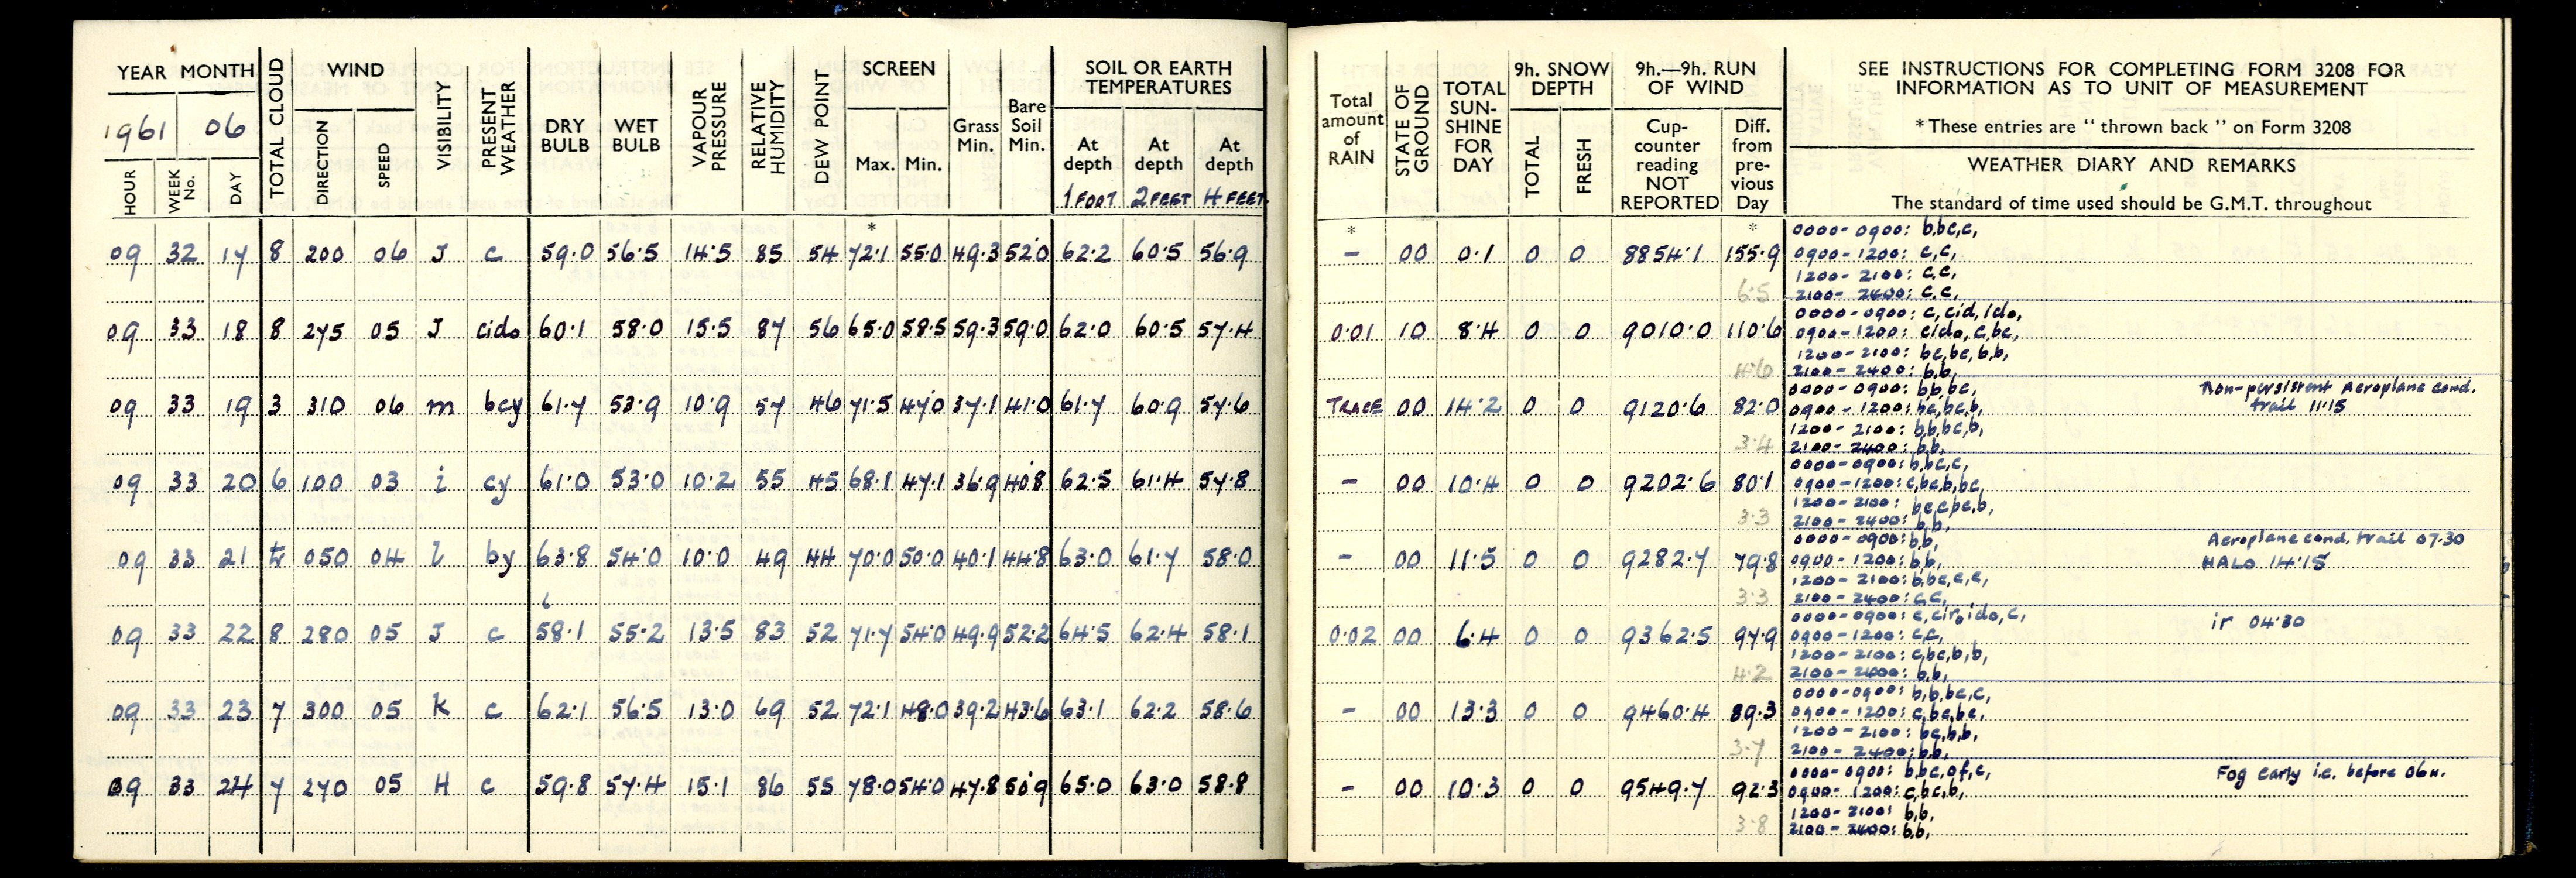 YEAR MONTH
1961 06
HOUR
WEEK No.
DAY
TOTAL CLOUD
WIND
DIRECTION
SPEED
VISIBILITY
PRESENT WEATHER
DRY BULB
WET BULB
VAPOUR PRESSURE
RELATIVE HUMIDITY
DEW POINT
SCREEN
Max. Min.
Grass Min.
Bare Soil Min.
SOIL OR EARTH TEMPERATURES
At depth 1 FOOT
At depth 2 FEET
At depth 4 FEET
*
09 32 17 8 200 06 J c 59.0 56.5 14.5 85 54 72.1 55.0 49.3 52.0 62.2 60.5 56.9
09 33 18 8 275 05 J cido 60.1 58.0 15.5 87 56 65.0 58.5 59.3 59.0 62.0 60.5 57.4
09 33 19 3 310 06 m bcy 61.7 53.9 10.9 57 46 71.5 47.0 37.1 41.0 61.7 60.9 57.6
09 33 20 6 100 03 i cy 61.0 53.0 10.2 55 45 68.1 47.1 36.9 40.8 62.5 61.4 57.8
09 33 21 tr 050 04 l by 63.8 54.0 10.0 49 44 70.0 50.0 40.1 44.8 63.0 61.7 58.0
6
09 33 22 8 280 05 J c 58.1 55.2 13.5 83 52 71.7 54.0 49.9 52.2 64.5 62.4 58.1
09 33 23 7 300 05 K c 62.1 56.5 13.0 69 52 72.1 48.0 39.2 43.6 63.1 62.2 58.6
09 33 24 7 270 05 H c 59.8 57.4 15.1 86 55 78.0 54.0 47.8 50.9 65.0 63.0 58.8
Total amount of RAIN
STATE OF GROUND
TOTAL SUN-SHINE FOR DAY
9h. SNOW DEPTH
TOTAL
FRESH
9h.—9h. RUN OF WIND
Cup-counter reading NOT REPORTED
Diff. from pre-vious Day
SEE INSTRUCTIONS FOR COMPLETING FORM 3208 FOR
INFORMATION AS TO UNIT OF MEASUREMENT
* These entries are "thrown back" on Form 3208
WEATHER DIARY AND REMARKS
The standard of time used should be G.M.T. throughout
* *
– 00 0.1 0 0 8854.1 155.9
6.5
0000-0900: b,bc,c,
0900-1200: c,c,
1200-2100: c,c,
2100-2400: c,c,
0.01 10 8.4 0 0 9010.0 110.6
4.6
0000-0900: c,cid,ido,
0900-1200: cido,c,bc,
1200-2100: bc,bc,b,b,
2100-2400: b,b,
TRACE 00 14.2 0 0 9120.6 82.0
3.4
0000-0900: b,b,bc,
0900-1200: bc,bc,b,
1200-2100: b,b,bc,b,
2100-2400: b,b,
Non-persistent Aeroplane cond.
trail 11.15
– 00 10.4 0 0 9202.6 80.1
3.3
0000-0900: b,bc,c,
0900-1200: c,bc,b,bc,
1200-2100: bc,c,bc,b,
2100-2400: b,b,
– 00 11.5 0 0 9282.7 79.8
3.3
0000-0900: b,b,
0900-1200: b,b,
1200-2100: b,bc,c,c,
2100-2400: c,c,
Aeroplane cond. trail 07.30
HALO 14.15
0.02 00 6.4 0 0 9362.5 97.9
4.2
0000-0900: c,ciro,ido,c,
0900-1200: c,c,
1200-2100: c,bc,b,b,
2100-2400: b,b,
ir 04.30
– 00 13.3 0 0 9460.4 89.3
3.7
0000-0900: b,b,bc,c,
0900-1200: c,bc,bc,
1200-2100: bc,b,b,
2100-2400: b,b,
– 00 10.3 0 0 9549.7 92.3
3.8
0000-0900: b,bc,of,c,
0900-1200: c,bc,b,
1200-2100: b,b,
2100-2400: b,b,
Fog early i.e. before 06H.